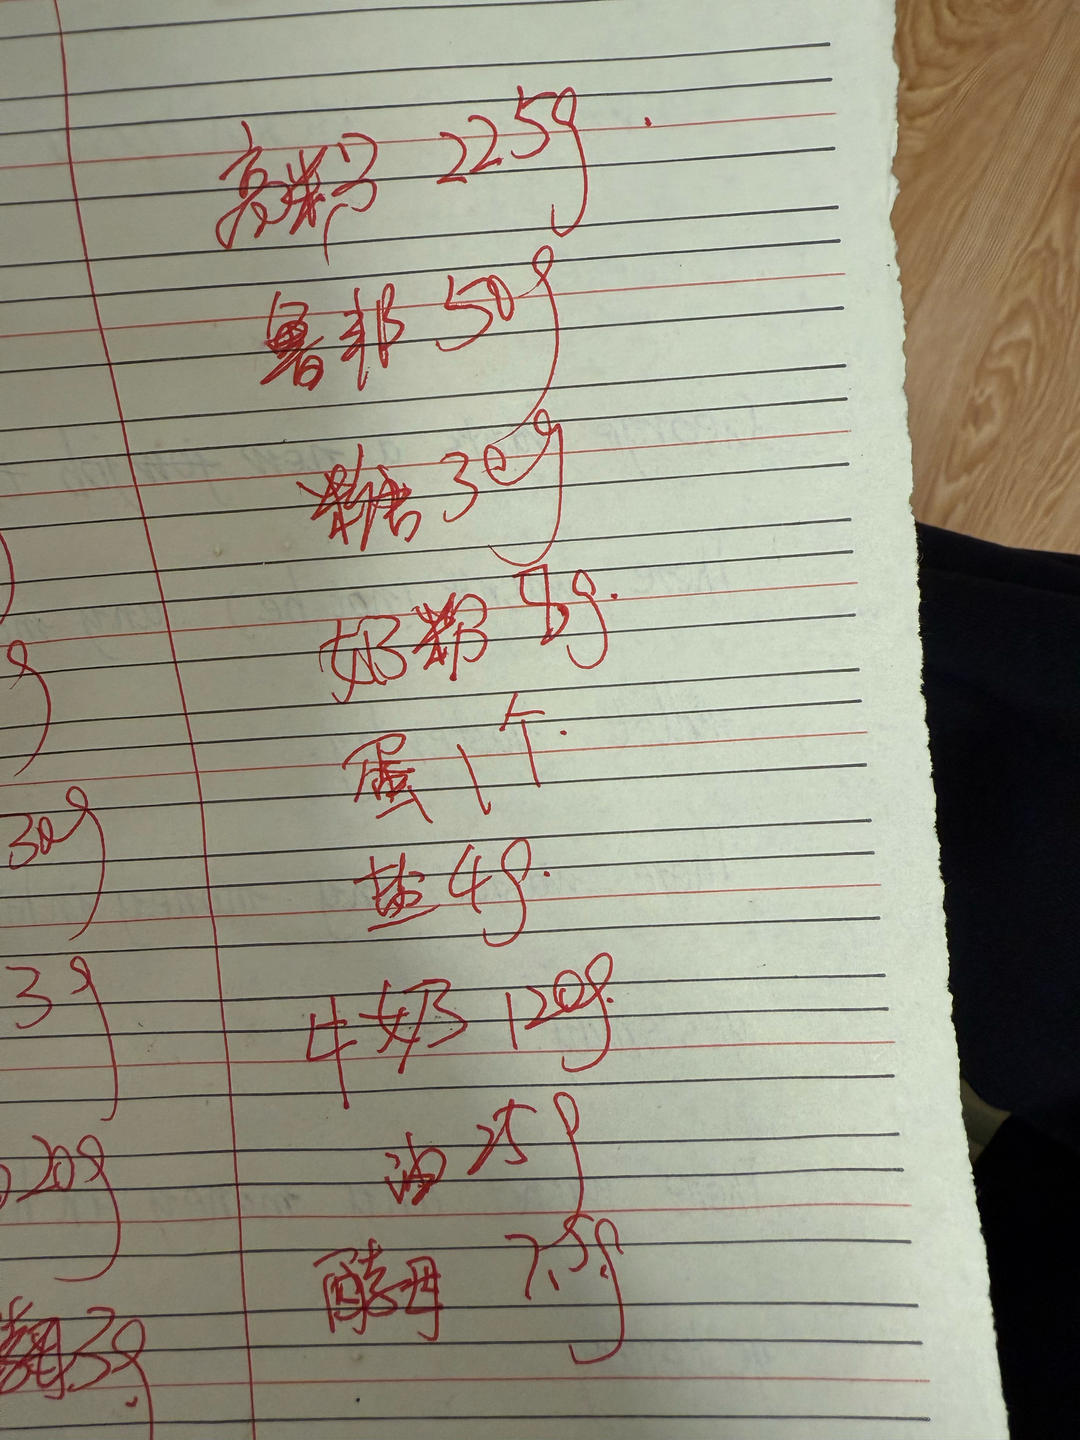 高粉 225g.
薯粉 50g
糖 30g
奶粉 8g.
蛋 1个.
盐 4g.
牛奶 120g.
油 25g
酵母 7.5g
30g
3g
20g
3g.